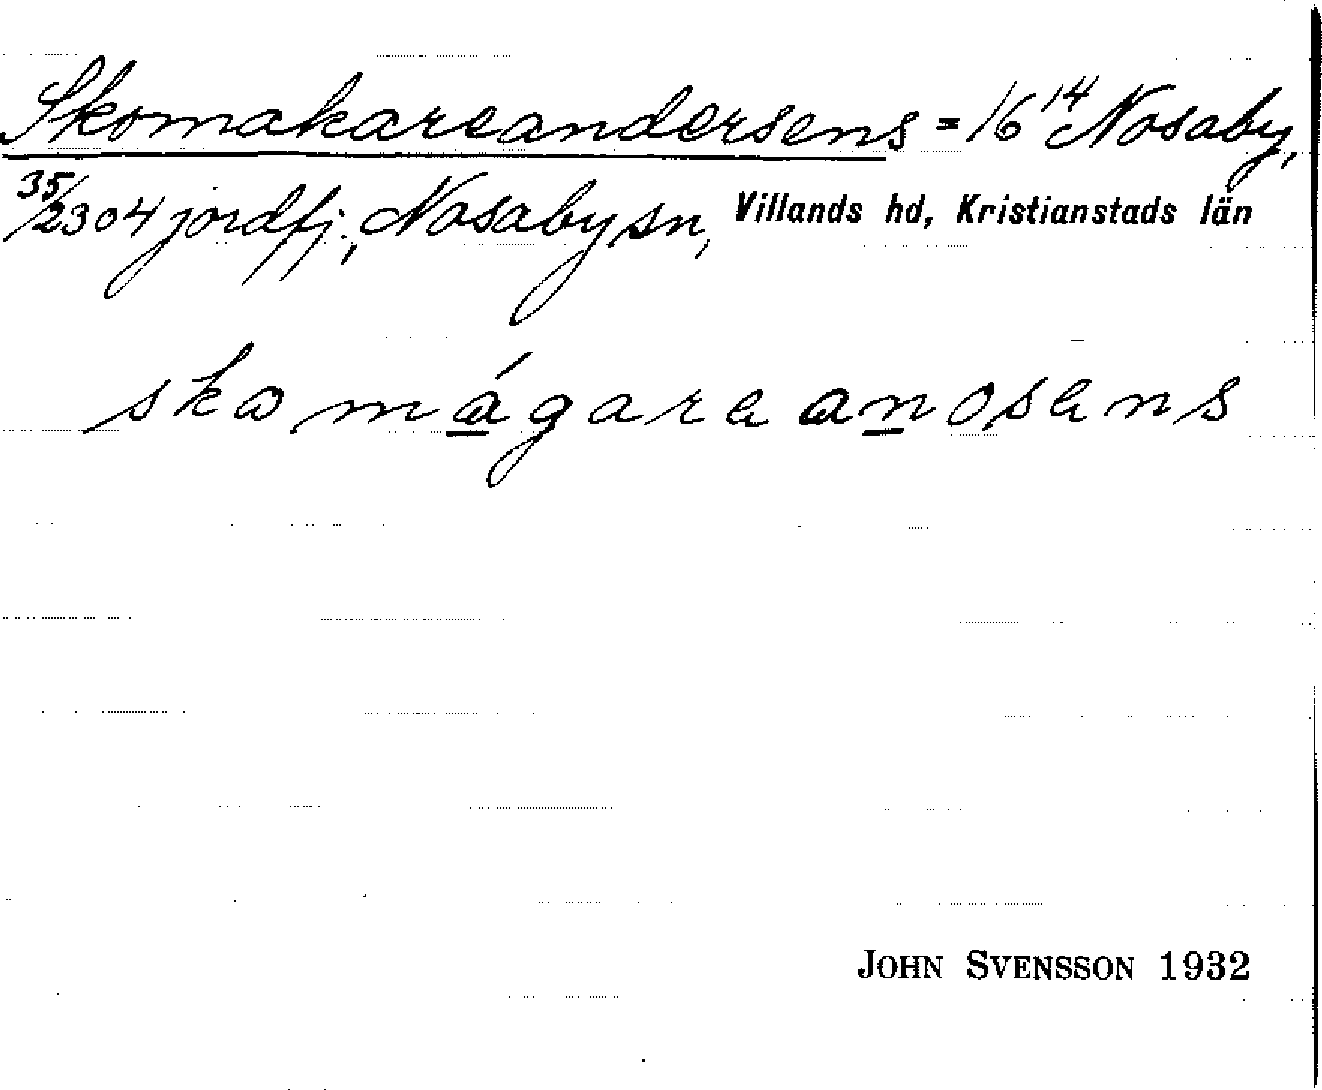 Skomakareandersens = 16¹⁴ Nosaby,
35/2304 jordfj., Nosaby sn, Villands hd, Kristianstads län
skomágara anosens
JOHN SVENSSON 1932